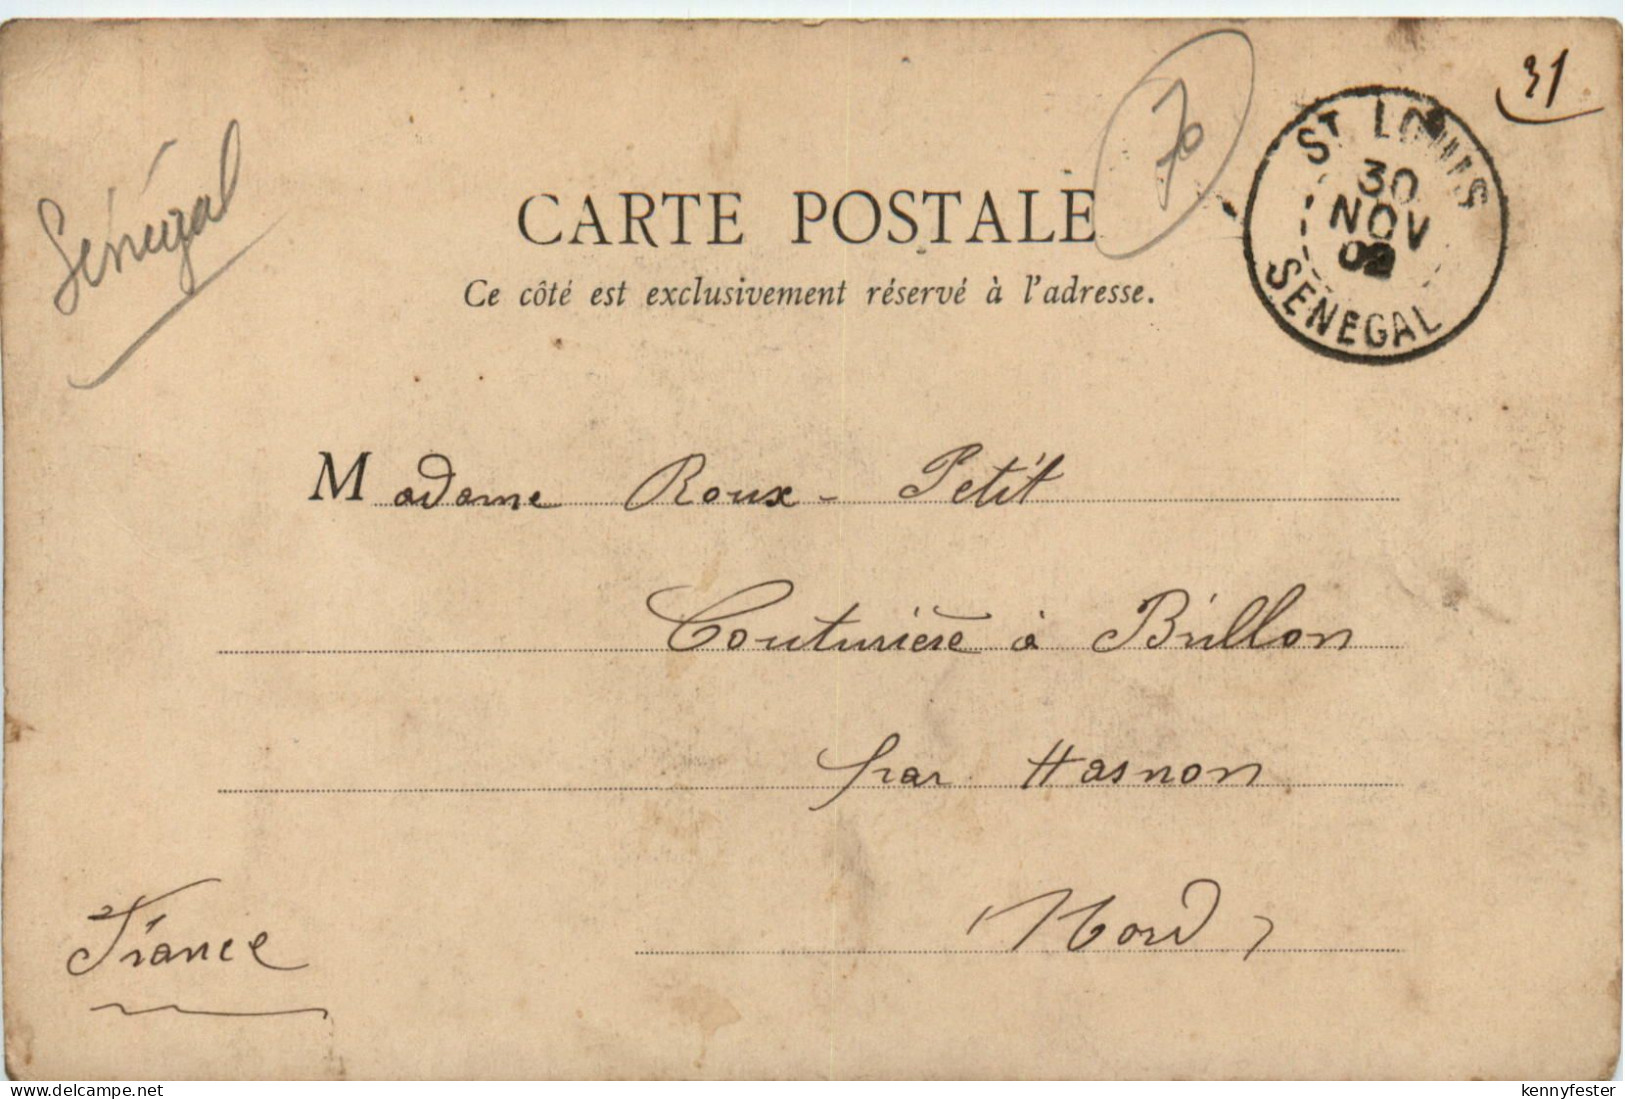 31
70
ST LOUIS
30
NOV
02
SENEGAL
Sénégal
CARTE POSTALE
Ce côté est exclusivement réservé à l'adresse.
Madame Roux-Petit
Couturière à Brillon
par Hasnon
(Nord)
France
delcampe.net
kennyfester